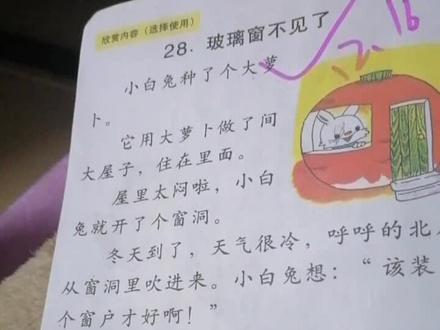 欣赏内容（选择使用）
28. 玻璃窗不见了
小白兔种了个大萝
卜。
它用大萝卜做了间
大屋子，住在里面。
屋里太闷啦，小白
兔就开了个窗洞。
冬天到了，天气很冷，呼呼的北
从窗洞里吹进来。小白兔想：“该装
个窗户才好啊！”